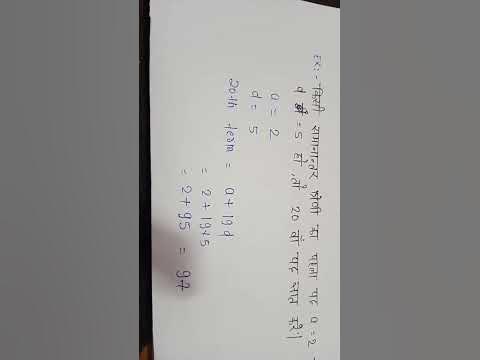 Ex:- किसी समान्तर श्रेणी का पहला पद a = 2
व d = 5 हो, तो 20 वां पद ज्ञात करे।
a = 2
d = 5
20th term = a + 19d
= 2 + 19×5
= 2 + 95 = 97